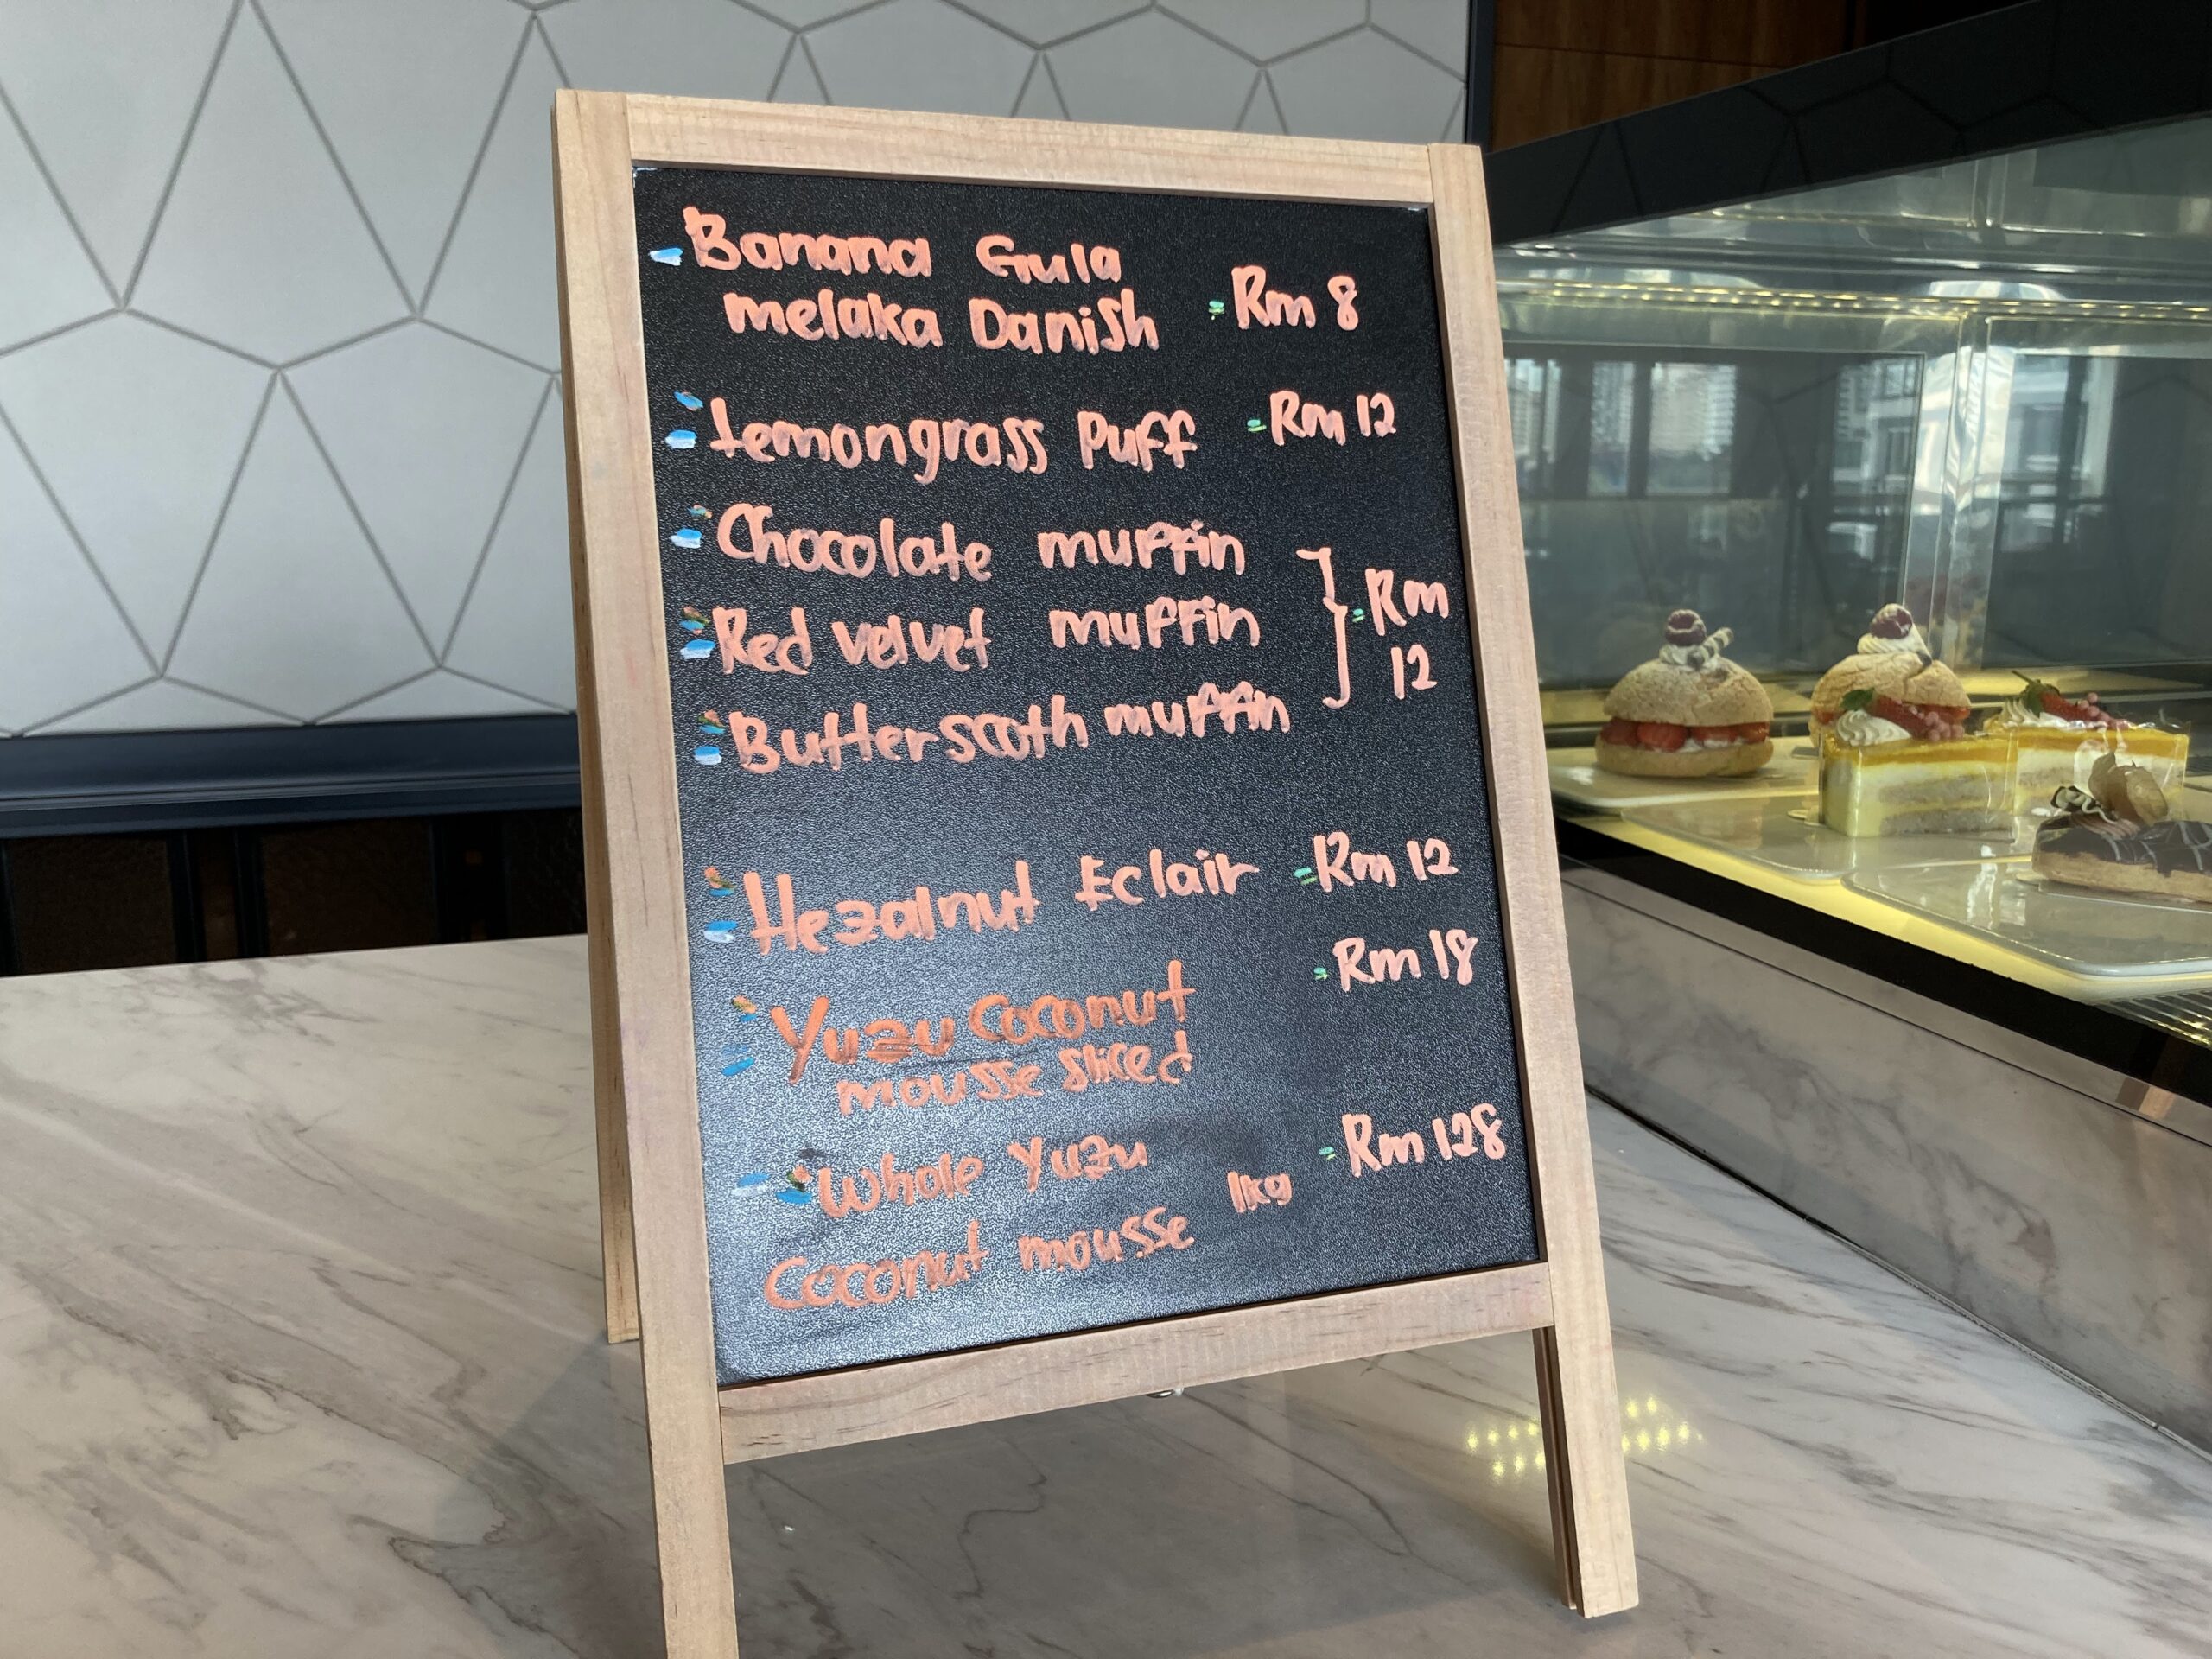 Banana Gula
melaka Danish - Rm 8
Lemongrass Puff - Rm 12
Chocolate muffin
Red velvet muffin - Rm
12
Butterscoth muffin
Hezalnut Eclair - Rm 12
- Rm 18
Yuzu Coconut
mousse sliced
Whole Yuzu 1kg - Rm 128
Coconut mousse